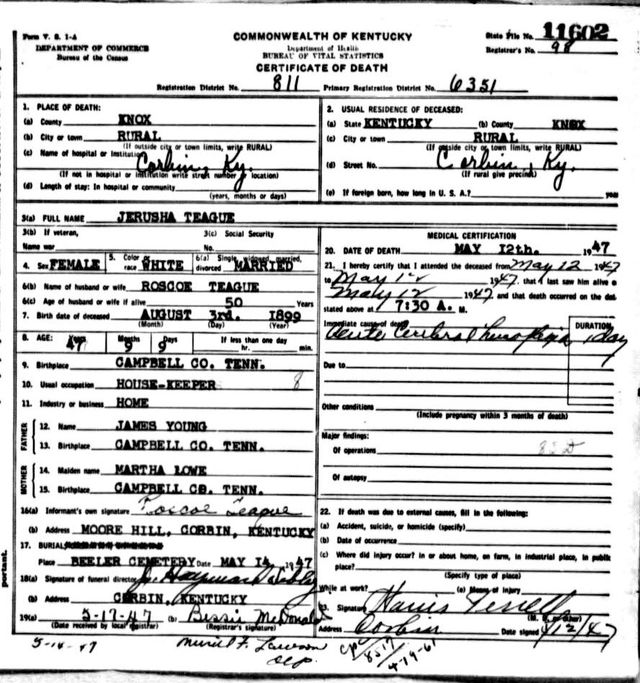 Form V. S. 1-A
DEPARTMENT OF COMMERCE
Bureau of the Census
COMMONWEALTH OF KENTUCKY
Department of Health
BUREAU OF VITAL STATISTICS
CERTIFICATE OF DEATH
State File No. 11602
Registrar's No. 98
Registration District No. 811 Primary Registration District No. 6351
1. PLACE OF DEATH:
(a) County KNOX
(b) City or town RURAL
(If outside city or town limits, write RURAL)
(c) Name of hospital or institution Corbin, Ky.
(If not in hospital or institution write street number location)
(d) Length of stay: In hospital or community
(years, months or days)
2. USUAL RESIDENCE OF DECEASED:
(a) State KENTUCKY (b) County KNOX
(c) City or town RURAL
(If outside city or town limits, write RURAL)
(d) Street No. Corbin, Ky.
(If rural give precinct)
(e) If foreign born, how long in U. S. A.? years
3(a) FULL NAME JERUSHA TEAGUE
3(b) If veteran, Name war 3(c) Social Security No.
4. Sex FEMALE 5. Color or race WHITE 6(a) Single, widowed, married, divorced MARRIED
6(b) Name of husband or wife ROSCOE TEAGUE
6(c) Age of husband or wife if alive 50 Years
7. Birth date of deceased AUGUST 3rd. 1899
(Month) (Day) (Year)
8. AGE: Years 47 Months 9 Days 9 If less than one day hr. min.
9. Birthplace CAMPBELL CO. TENN.
10. Usual occupation HOUSE-KEEPER 8
11. Industry or business HOME
FATHER
12. Name JAMES YOUNG
13. Birthplace CAMPBELL CO. TENN.
MOTHER
14. Maiden name MARTHA LOWE
15. Birthplace CAMPBELL CO. TENN.
16(a) Informant's own signature Roscoe Teague
(b) Address MOORE HILL, CORBIN, KENTUCKY
17. BURIAL
Place BEELER CEMETERY Date MAY 14, 1947
18(a) Signature of funeral director
(b) Address CORBIN, KENTUCKY
19(a) 5-17-47 (b) Bessie McDonald
(Date received by local registrar) (Registrar's signature)
MEDICAL CERTIFICATION
20. DATE OF DEATH MAY 12th. 1947
21. I hereby certify that I attended the deceased from May 12 1947
to May 12 1947, that I saw him alive on
May 12 1947 and that death occurred on the date
stated above at 7:30 A. M.
Immediate cause of death DURATION
Acute Cerebral 1 day
Due to
Other conditions
(Include pregnancy within 3 months of death)
Major findings:
Of operations
Of autopsy
22. If death was due to external causes, fill in the following:
(a) Accident, suicide, or homicide (specify)
(b) Date of occurrence
(c) Where did injury occur? in or about home, on farm, in industrial place, in public place?
(Specify type of place)
While at work? (e) Means of injury
23. Signature
Address Corbin Date signed 5/12/47
5-14-47
4-19-61
portant.